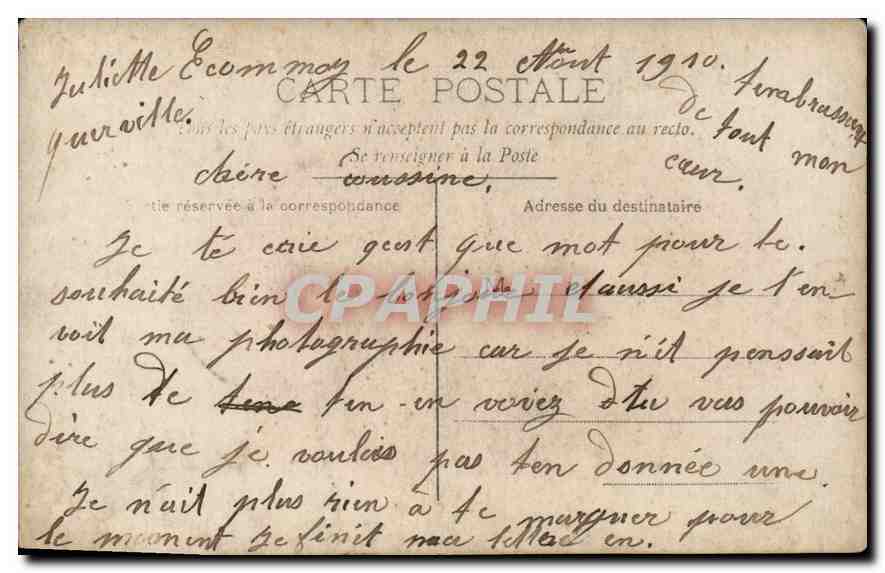 Ecommoy le 22 Août 1910.
CARTE POSTALE
Tous les pays étrangers n'acceptent pas la correspondance au recto.
Se renseigner à la Poste
chére coussine,
tie réservée à la correspondance
Adresse du destinataire
Je té crie que mot pour te.
souhaité bien le bonjour et aussi je t'en
voit ma photographie car je n'it penssait
plus de t'en en voiyez tu vas pouvoir
dire que je voulais pas ten donnée une.
Je n'ait plus rien à te marquer pour
le moment je finit ma lettre en.
tenbrassent
de tout mon
cœur.
Juliette
querville.
CPAPHIL